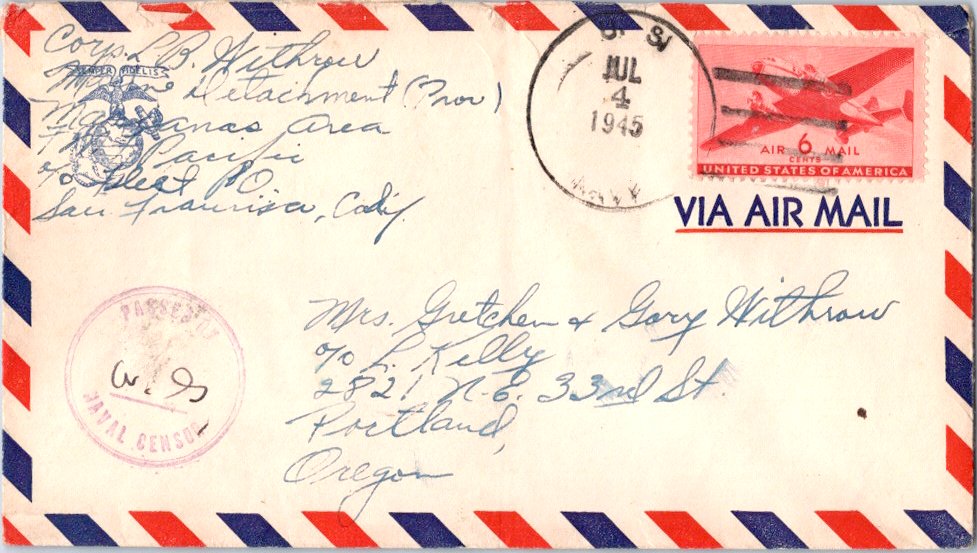 Corp. L. B. Withrow
SEMPER FIDELIS
Marine Detachment (Prov)
Marianas Area
FMF Pacific
c/o Fleet P.O.
San Francisco, Calif.
U. S.
JUL
4
1945
NAVY
AIR 6 MAIL
CENTS
UNITED STATES OF AMERICA
VIA AIR MAIL
PASSED BY
NAVAL CENSOR
Mrs. Gretchen & Gary Withrow
c/o L. Kelly
2821 N.E. 33rd St.
Portland,
Oregon